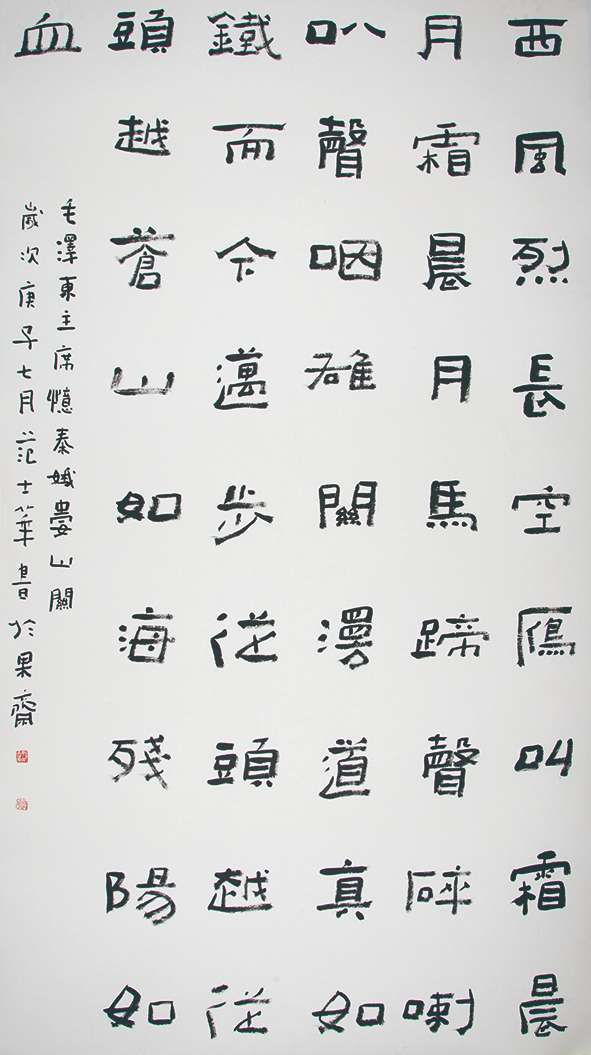 西風烈長空鴈叫霜晨
月霜晨月馬蹄聲碎喇
叭聲咽雄關漫道真如
鐵而今邁步從頭越從
頭越蒼山如海殘陽如
血
毛澤東主席憶秦娥婁山關
歲次庚子七月范士華書於果齋